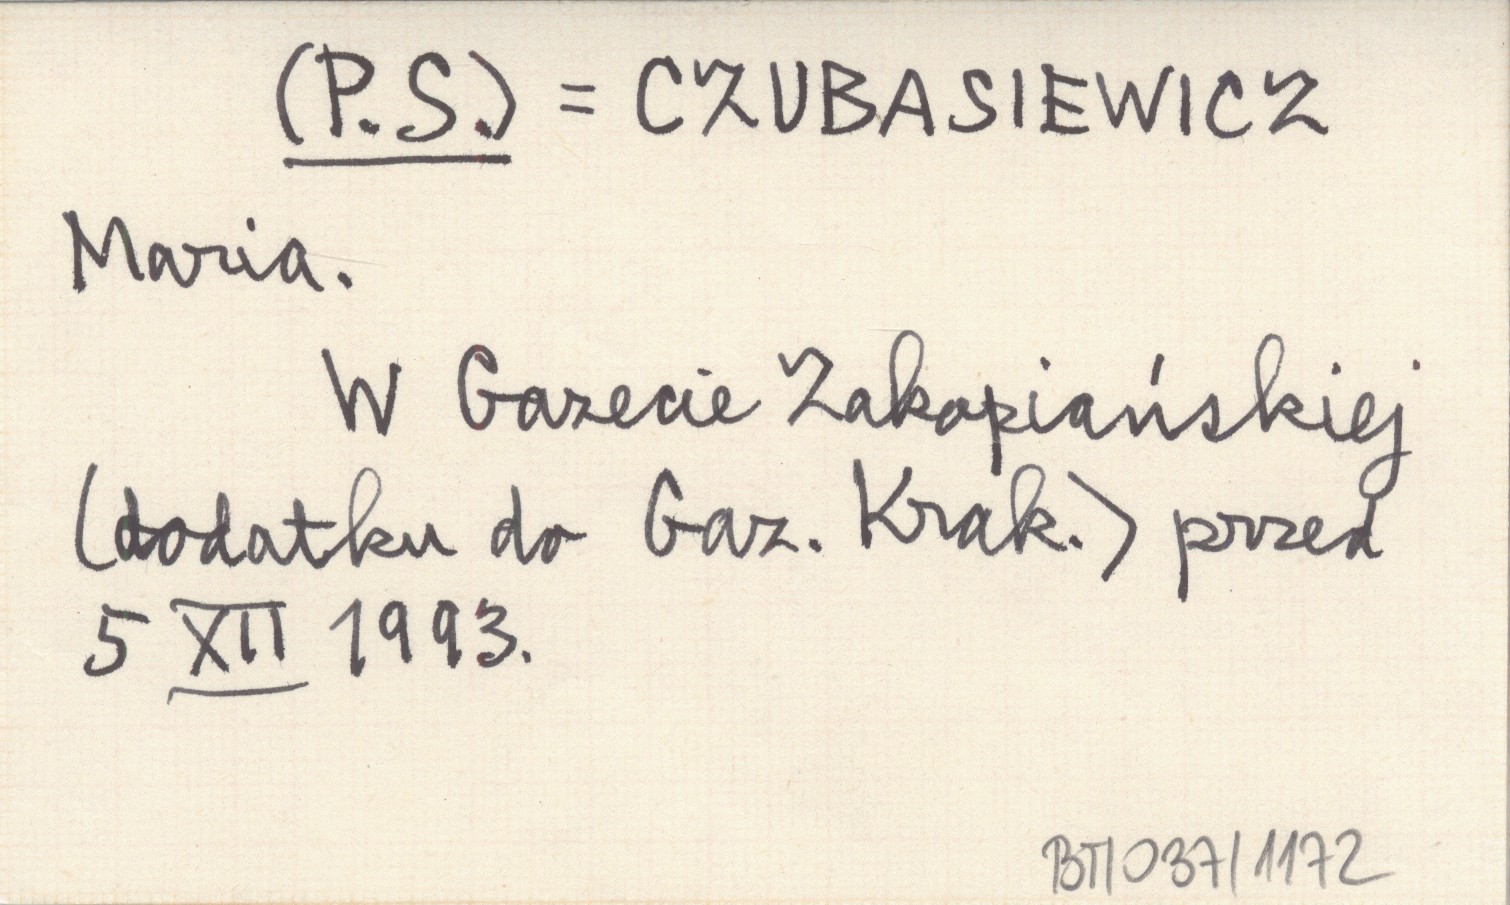 (P.S.) = CZUBASIEWICZ
Maria.
W Gazecie Zakopiańskiej
(dodatku do Gaz. Krak.) przed
5 XII 1993.
BT/037/1172